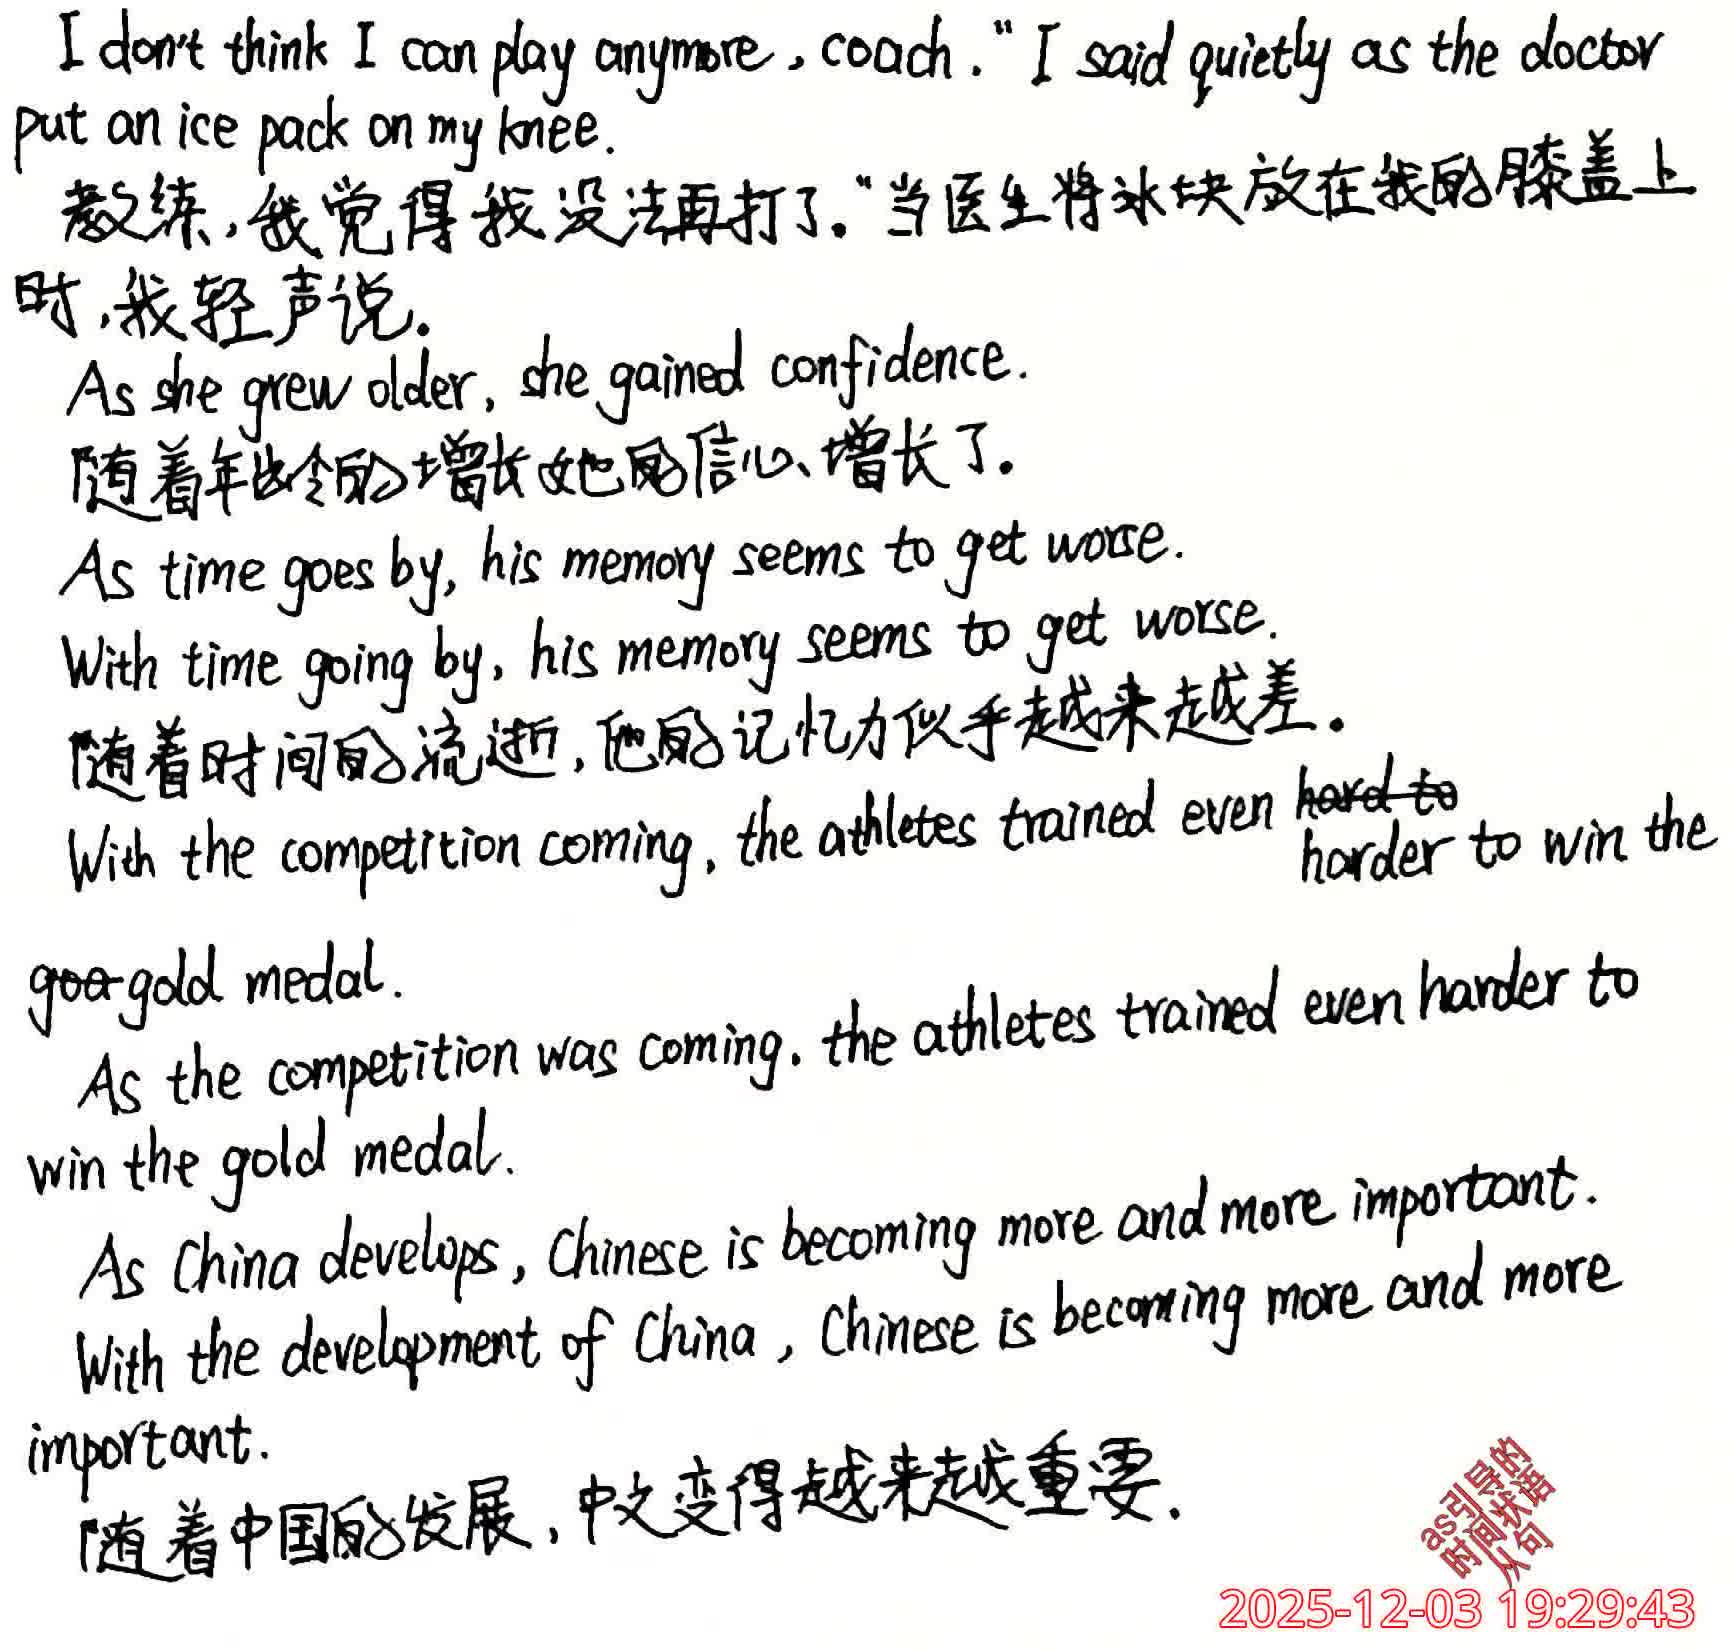 I don't think I can play anymore, coach." I said quietly as the doctor
put an ice pack on my knee.
教练,我觉得我没法再打了。"当医生将冰块放在我的膝盖上
时,我轻声说。
As she grew older, she gained confidence.
随着年龄的增长她的信心增长了。
As time goes by, his memory seems to get worse.
With time going by, his memory seems to get worse.
随着时间的流逝,他的记忆力似乎越来越差。
With the competition coming, the athletes trained even hard to
harder to win the
goo gold medal.
As the competition was coming. the athletes trained even harder to
win the gold medal.
As China develops, Chinese is becoming more and more important.
With the development of China, Chinese is becoming more and more
important.
随着中国的发展,中文变得越来越重要.
as引导的
时间状语
从句
2025-12-03 19:29:43